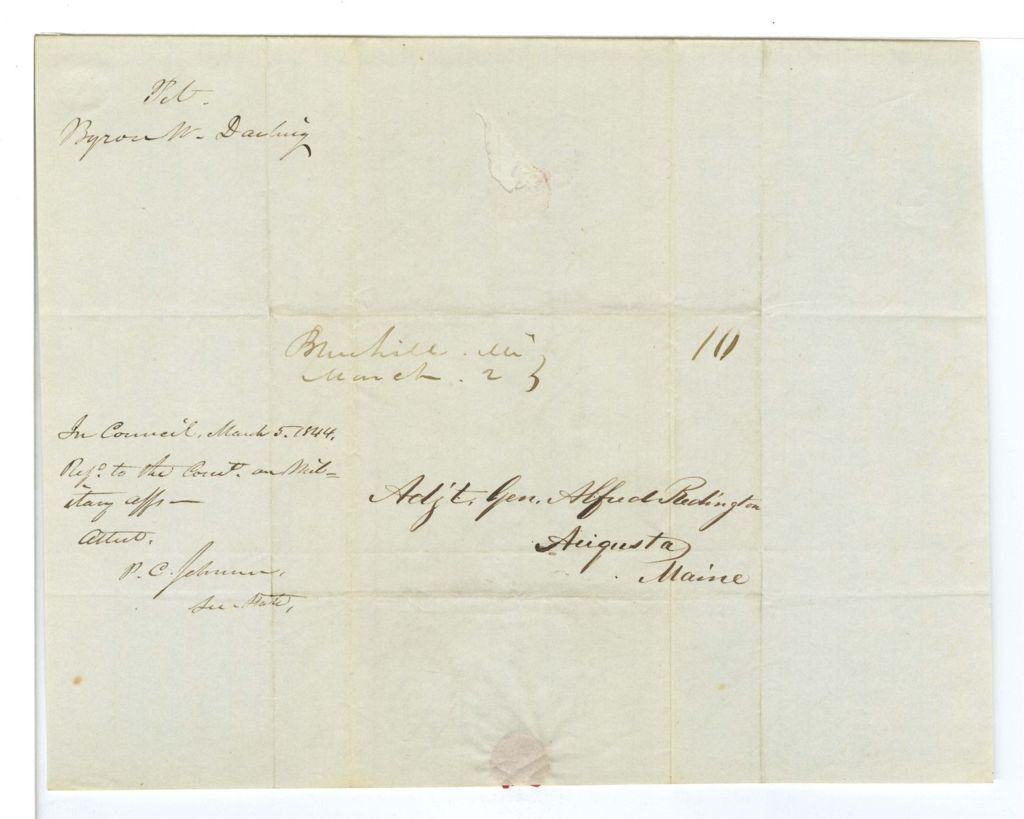 Pet.
Byron W. Darling
Bluehill. Me
March. 2
10
In Council, March 5. 1844.
Refd. to the Comt. on Mil=
itary affs—
Attest.
P. C. Johnson,
Sec. State,
Adjt. Gen. Alfred Redington
Augusta
Maine